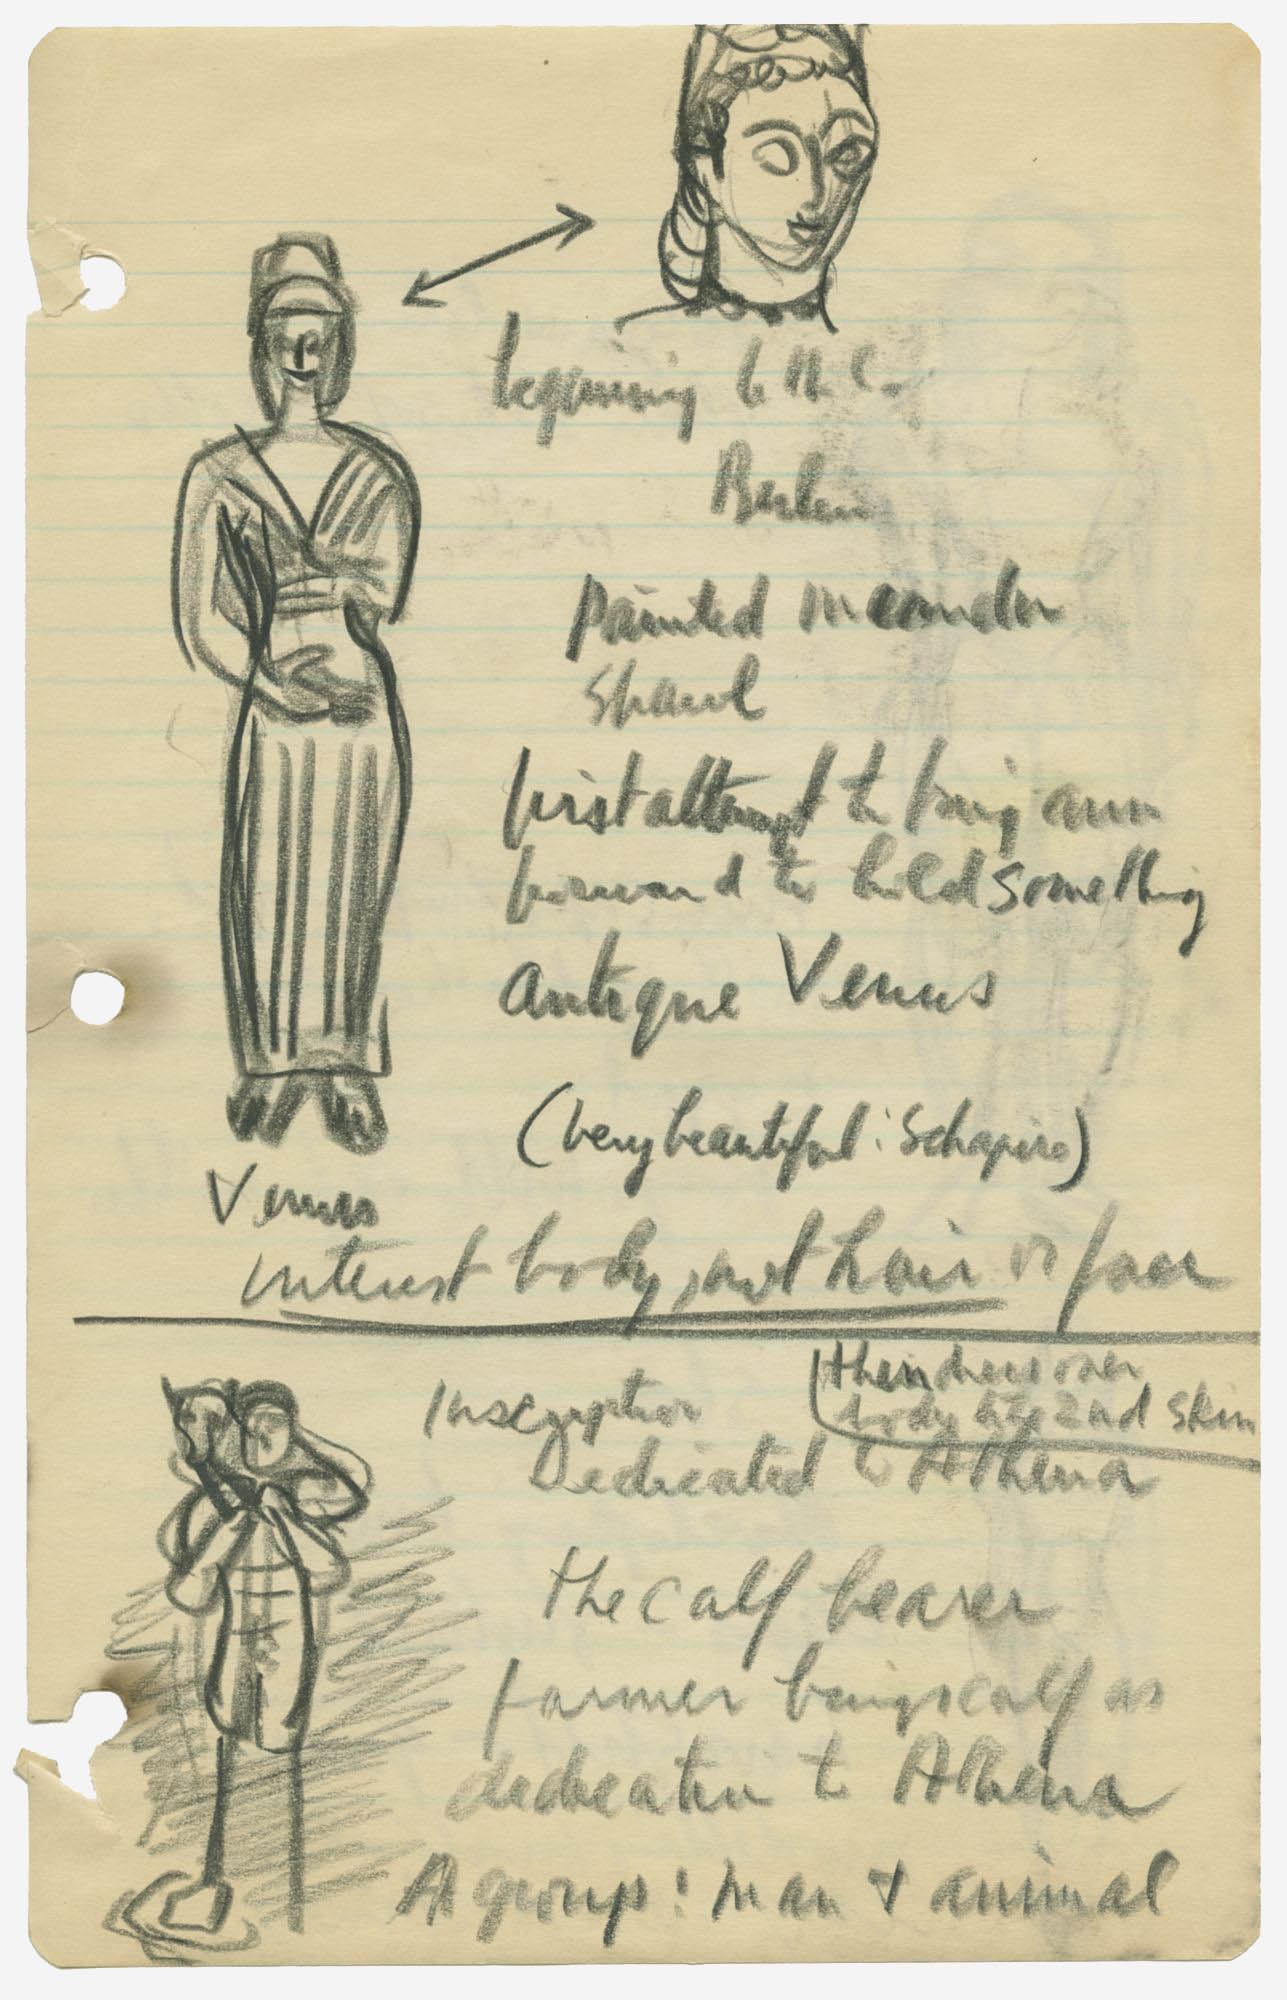 beginning 6 th c.
Berlin
Painted meander
Shawl
first attempt to bring arm
forward to hold something
Antique Venus
(very beautiful: Schapiro)
Venus
interest body, not hair or face
then dress over
body like 2nd skin
Inscription
Dedicated to Athena
The calf bearer
farmer brings calf as
dedication to Athena
A group: man + animal